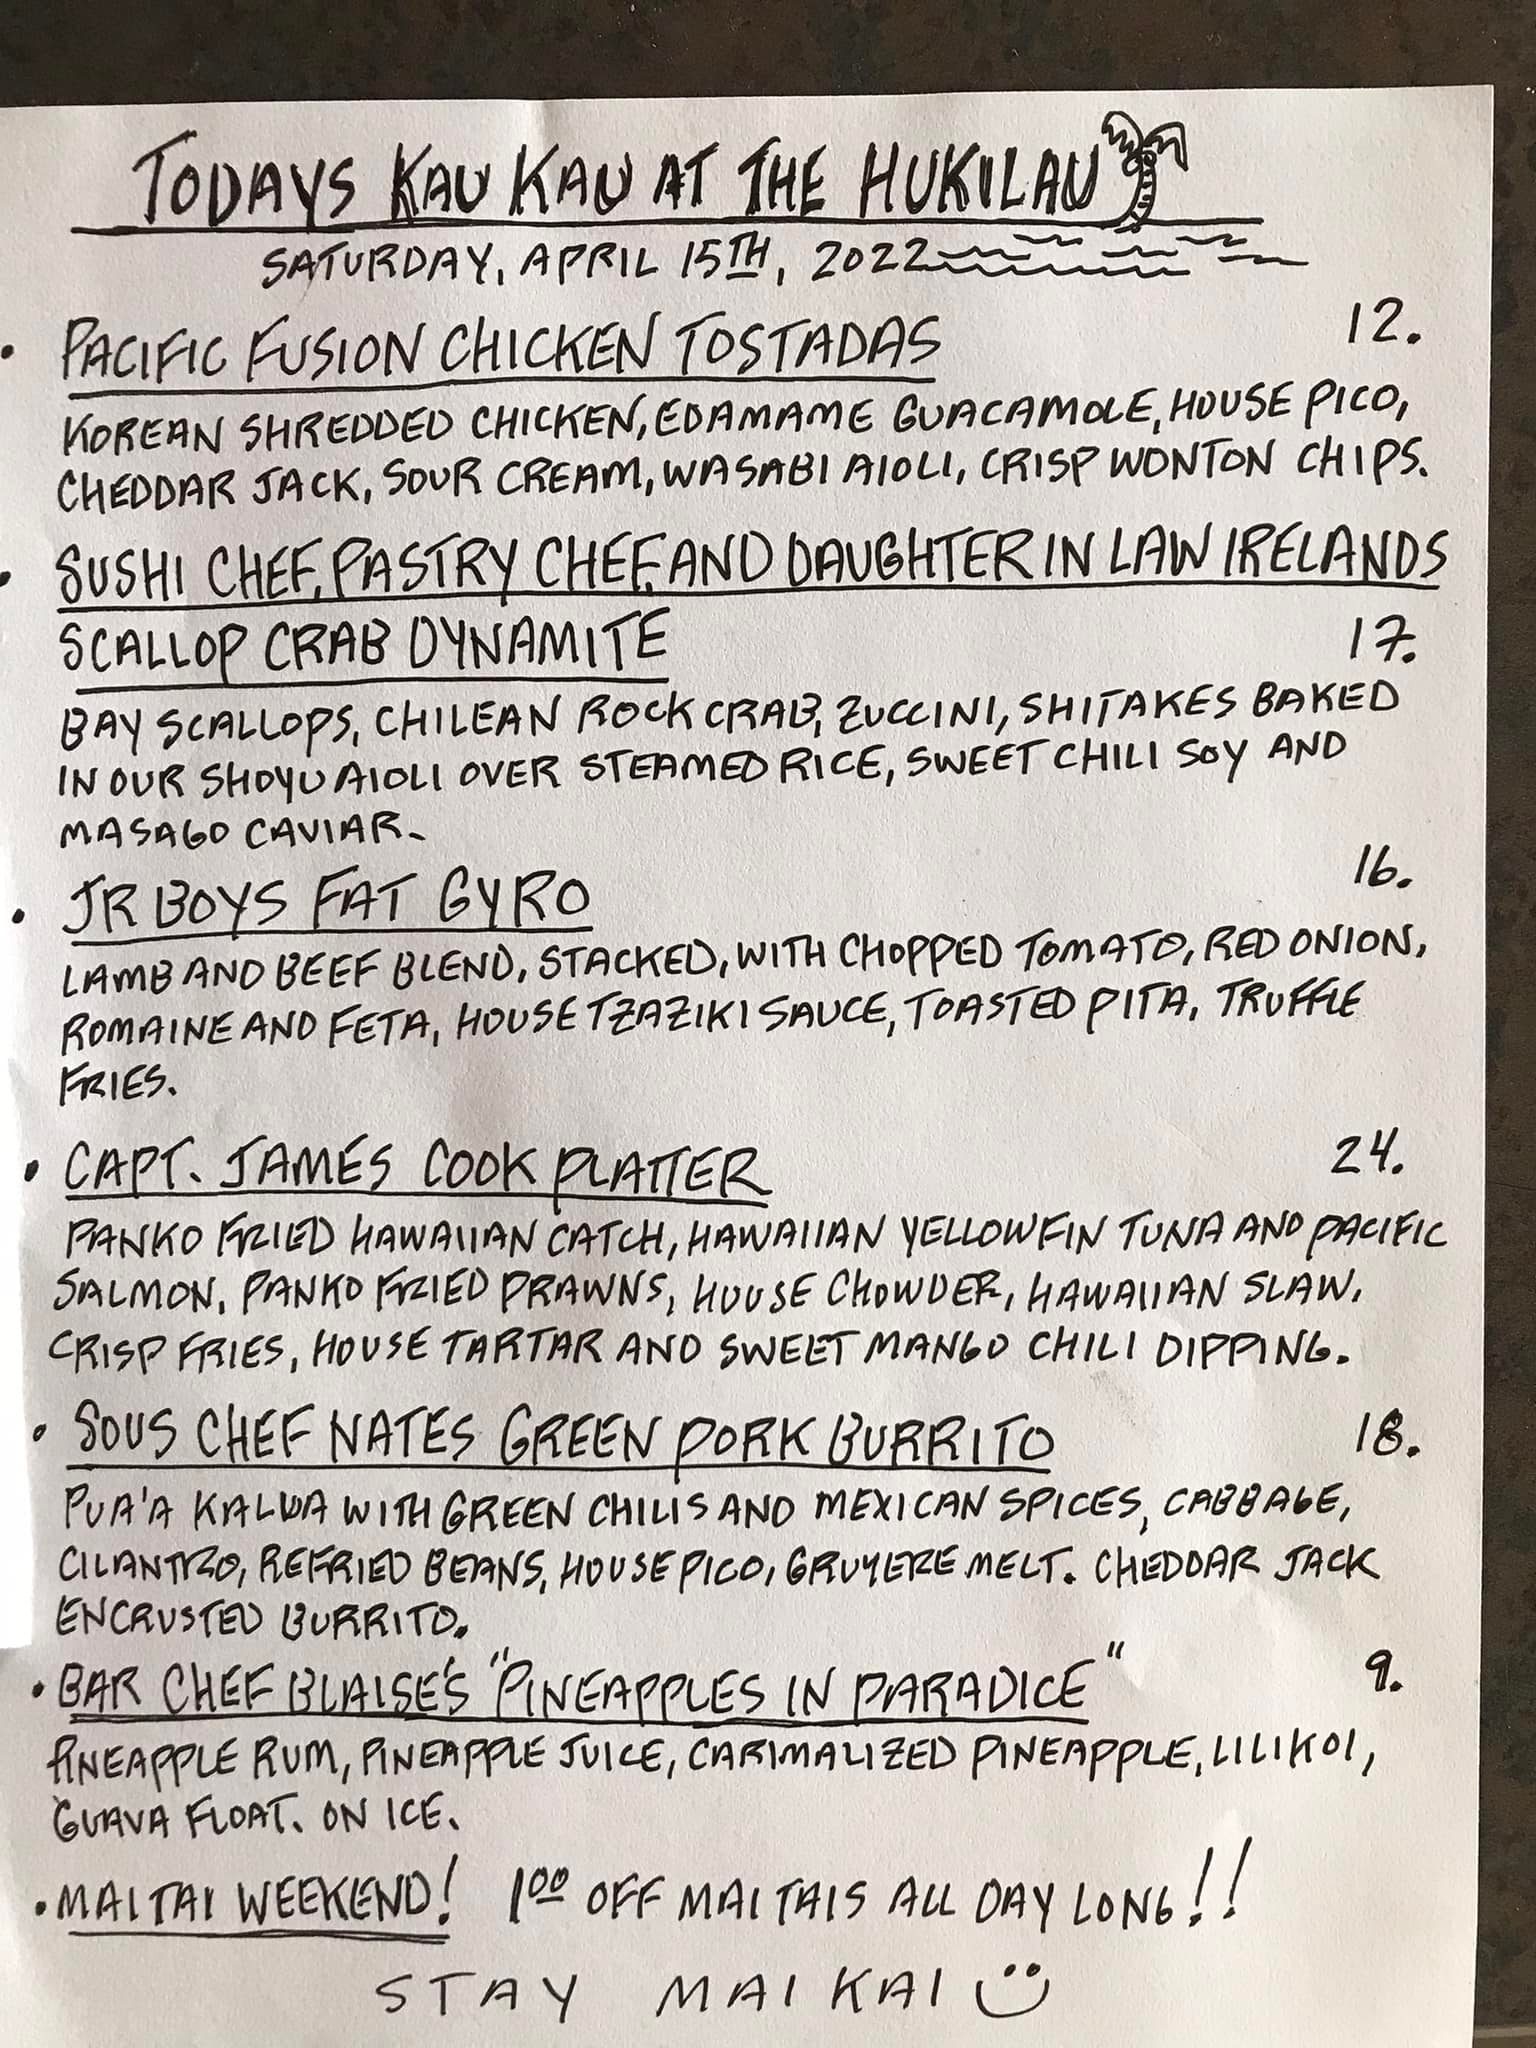 TODAYS KAU KAU AT THE HUKILAU
SATURDAY, APRIL 15TH, 2022
• PACIFIC FUSION CHICKEN TOSTADAS 12.
KOREAN SHREDDED CHICKEN, EDAMAME GUACAMOLE, HOUSE PICO,
CHEDDAR JACK, SOUR CREAM, WASABI AIOLI, CRISP WONTON CHIPS.
• SUSHI CHEF, PASTRY CHEF, AND DAUGHTER IN LAW IRELANDS
SCALLOP CRAB DYNAMITE 17.
BAY SCALLOPS, CHILEAN ROCK CRAB, ZUCCINI, SHITAKES BAKED
IN OUR SHOYU AIOLI OVER STEAMED RICE, SWEET CHILI SOY AND
MASAGO CAVIAR.
• JR BOYS FAT GYRO 16.
LAMB AND BEEF BLEND, STACKED, WITH CHOPPED TOMATO, RED ONION,
ROMAINE AND FETA, HOUSE TZAZIKI SAUCE, TOASTED PITA, TRUFFLE
FRIES.
• CAPT. JAMES COOK PLATTER 24.
PANKO FRIED HAWAIIAN CATCH, HAWAIIAN YELLOWFIN TUNA AND PACIFIC
SALMON, PANKO FRIED PRAWNS, HOUSE CHOWDER, HAWAIIAN SLAW,
CRISP FRIES, HOUSE TARTAR AND SWEET MANGO CHILI DIPPING.
• SOUS CHEF NATES GREEN PORK BURRITO 18.
PUA'A KALUA WITH GREEN CHILIS AND MEXICAN SPICES, CABBAGE,
CILANTRO, REFRIED BEANS, HOUSE PICO, GRUYERE MELT. CHEDDAR JACK
ENCRUSTED BURRITO.
• BAR CHEF BLAISE'S "PINEAPPLES IN PARADICE" 9.
PINEAPPLE RUM, PINEAPPLE JUICE, CARIMALIZED PINEAPPLE, LILIKOI,
GUAVA FLOAT. ON ICE.
• MAI TAI WEEKEND! 1 00 OFF MAI TAIS ALL DAY LONG!!
STAY MAI KAI